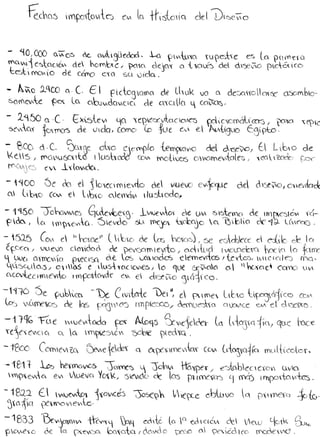 Fechas importantes en la Historia del Diseño
- 40,000 años de antigüedad. La pintura rupestre es la primera
manifestación del hombre, para dejar a través del diseño pictórico
testimonio de cómo era su vida.
- Año 2900 a.C. El pictograma de Uruk va a desarrollarse asombro-
samente por la abundancia de arcilla y cañas.
- 2450 a.C. Existen ya representaciones policromáticas, para repre
sentar formas de vida, como lo fue en el Antiguo Egipto.
- 800 d.C. Surge otro ejemplo temprano del diseño, El Libro de
Kells, manuscrito ilustrado con motivos ornamentales, realizado por
monjes en Irlanda.
- 1400 Se da el florecimiento del nuevo enfoque del diseño, cuando
al libro con el libro alemán ilustrado.
- 1450 Johannes Gutenberg. Inventor de un sistema de impresión rá-
pida, la imprenta. Siendo su mejor trabajo la Biblia de 42 líneas.
- 1525 Con el "horae" (libro de las horas), se establece el estilo de la
época, nueva claridad de pensamiento, actitud hacia la forma
y una armonía precisa de los variados elementos: textos, iniciales ma-
yúsculas, orillas e ilustraciones, lo que señala al "horae" como un
acontecimiento importante en el diseño gráfico.
- 1470 Se publica "De Civitate Dei", el primer libro tipográfico con
los números de las páginas impresos, demuestra avance en el diseño.
- 1796 Fue inventada por Aloys Senefelder la litografía, que hace
referencia a la impresión sobre piedra.
- 1800 Comienza Senefelder a experimentar con litografía multicolor.
- 1817 Los hermanos James y John Harper, establecieron una
imprenta en Nueva York, siendo de las primeras y más importantes.
- 1822 El inventor francés Joseph Niepce obtuvo la primera foto-
grafía permanente.
- 1833 Benjamin Henry Day editó la 1ª edición del New York Sun
pionero de la prensa barata, dando paso al periódico moderno.